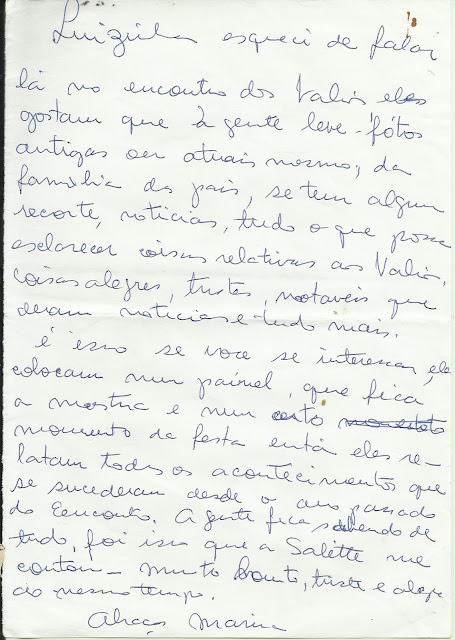 Luizinha esqueci de falar
lá no encontro dos Valios eles
gostam que a gente leve - fótos
antigas ou atuais mesmo, da
familia dos pais, se tem algum
recorte, noticias, tudo o que possa
esclarecer coisas relativas aos Valios,
coisas alegres, tristes, notaveis que
deram noticias e tudo mais.
é isso se voce se interessar, eles
colocam num painel, que fica
a mostra e num certo
momento da festa então eles re-
latam todos os acontecimentos que
se sucederam desde o ano passado
do Eencontro. A gente fica sabendo de
tudo, foi isso que a Salette me
contou - muito bonito, triste e alegre
ao mesmo tempo.
Abraços Marina